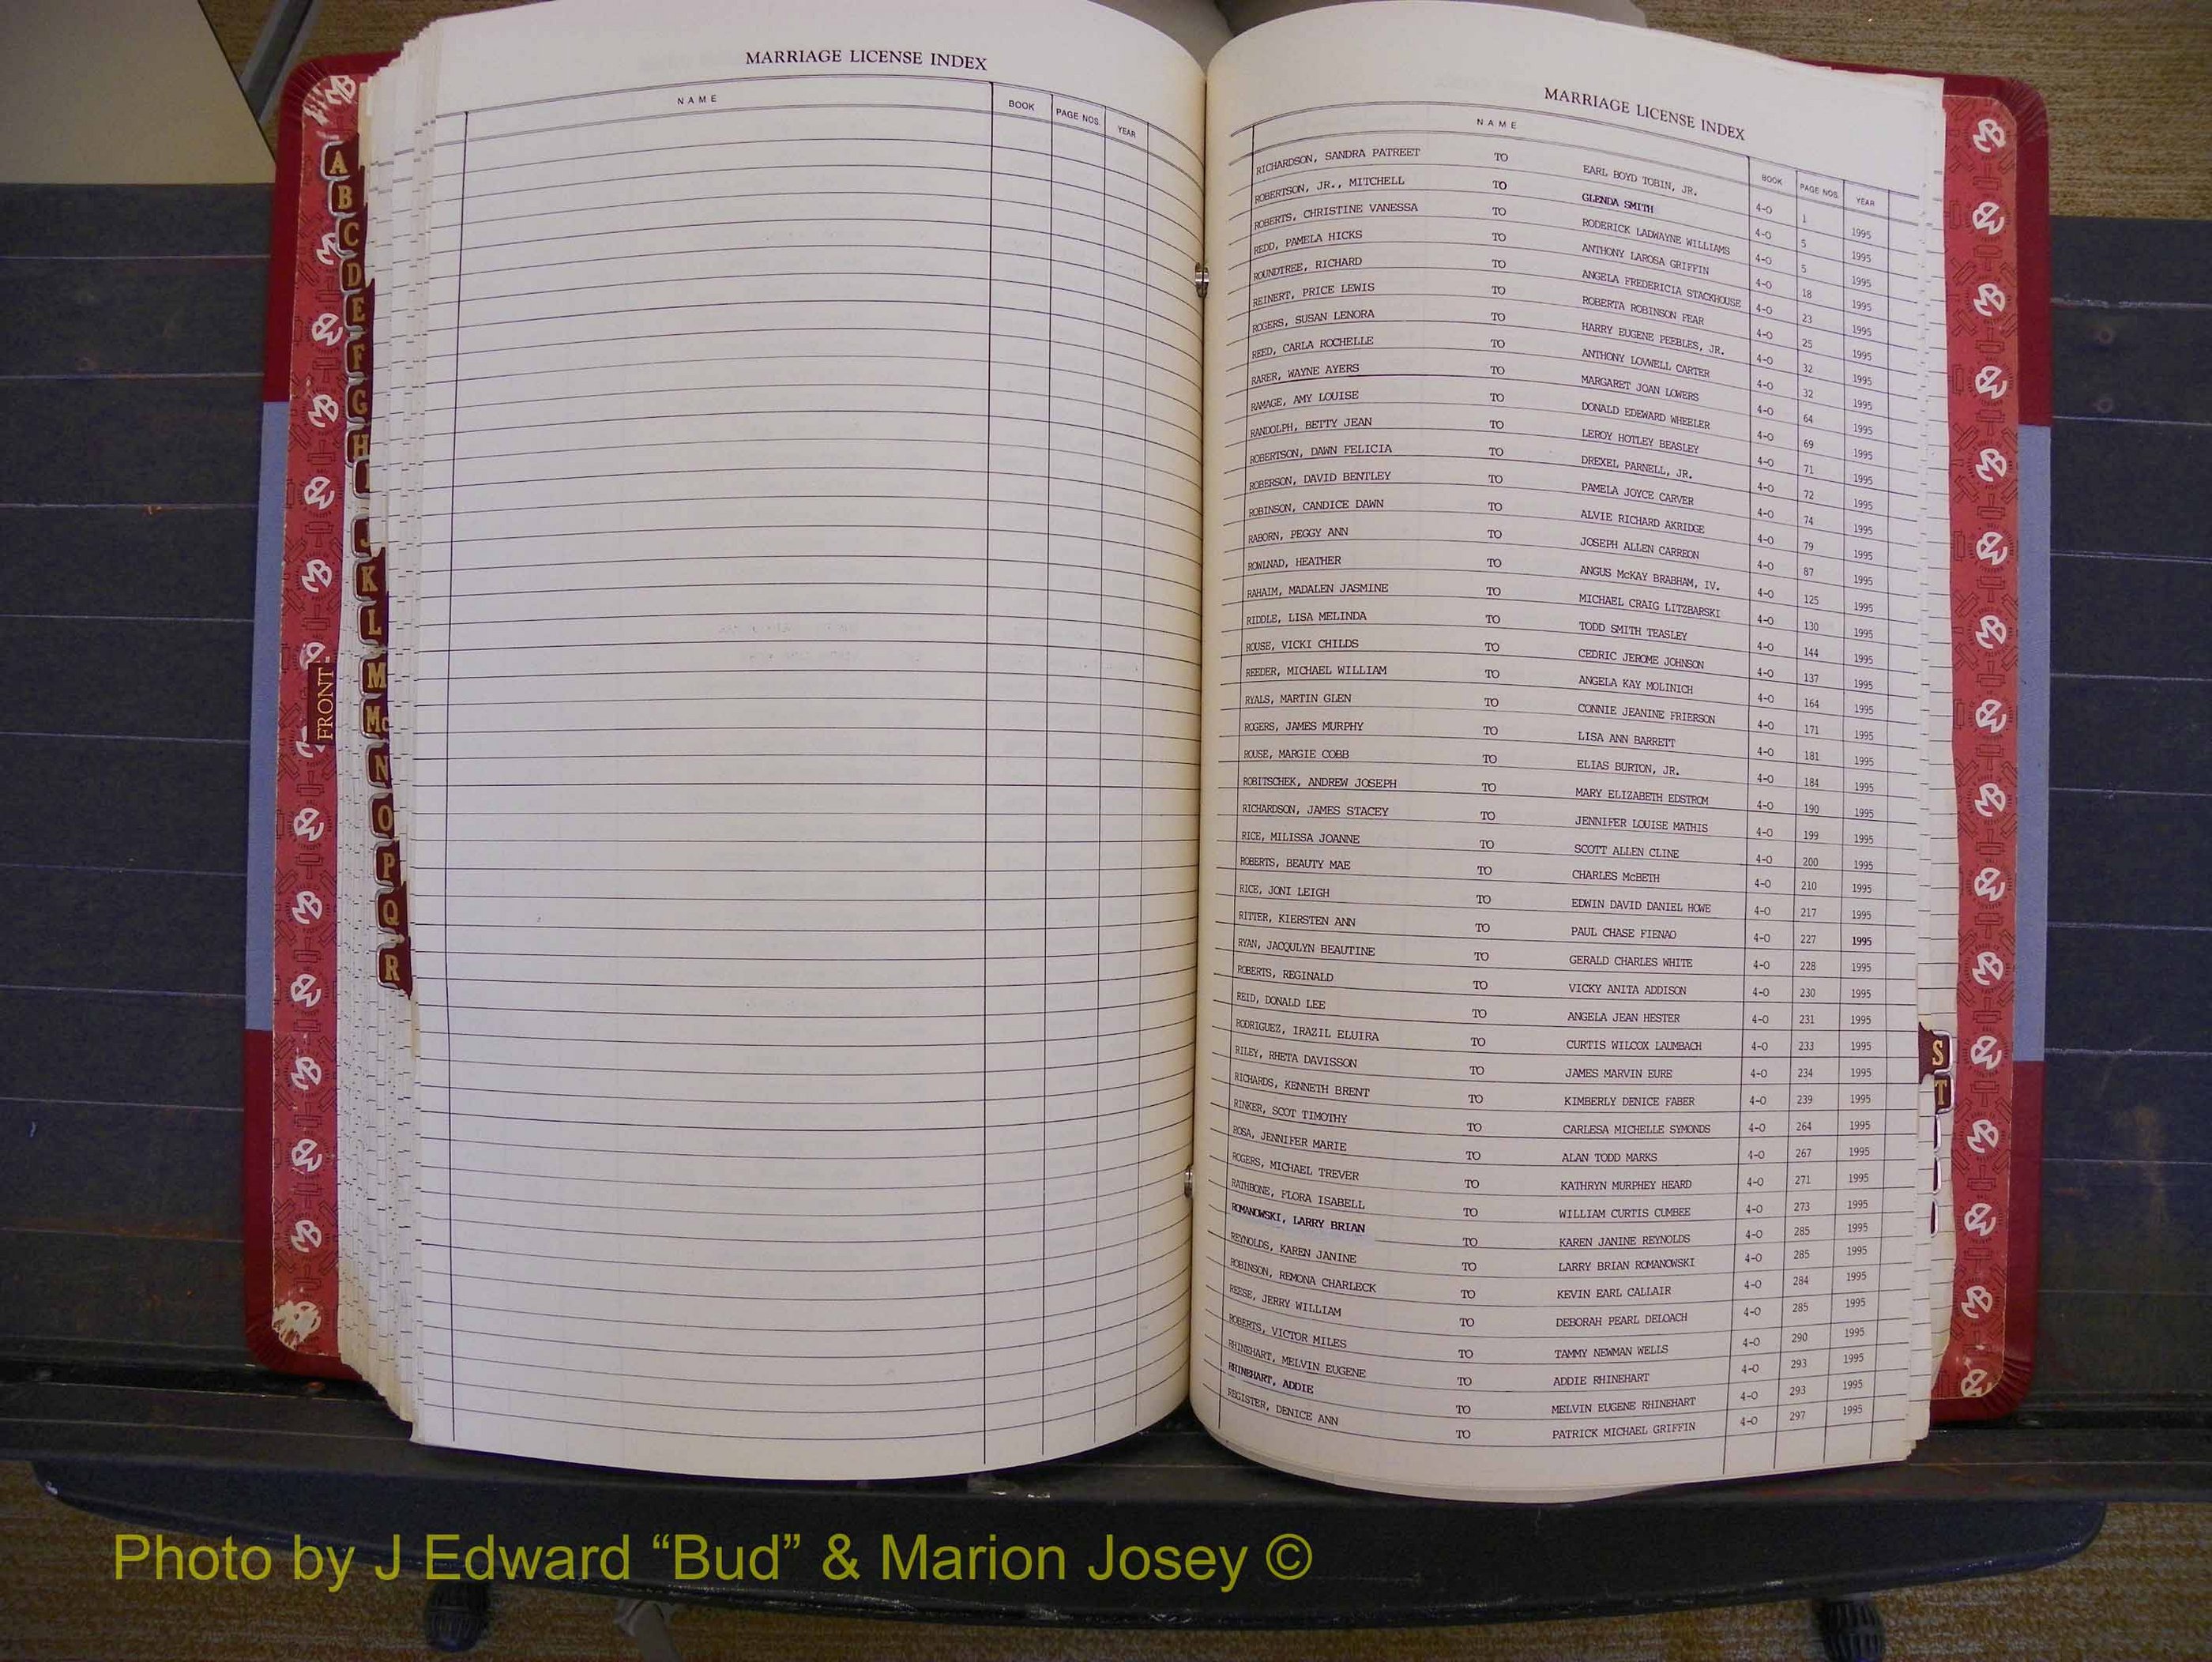 MARRIAGE LICENSE INDEX
NAME BOOK PAGE NOS. YEAR
A
B
C
D
E
F
G
H
I
J
K
L
M
Mc
N
O
P
Q
R
FRONT
MARRIAGE LICENSE INDEX
NAME BOOK PAGE NOS. YEAR
RICHARDSON, SANDRA PATREET TO EARL BOYD TOBIN, JR. 4-O 1 1995
ROBERTSON, JR., MITCHELL TO GLENDA SMITH 4-O 5 1995
ROBERTS, CHRISTINE VANESSA TO RODERICK LADWAYNE WILLIAMS 4-O 5 1995
REDD, PAMELA HICKS TO ANTHONY LAROSA GRIFFIN 4-O 18 1995
ROUNDTREE, RICHARD TO ANGELA FREDERICIA STACKHOUSE 4-O 23 1995
REINERT, PRICE LEWIS TO ROBERTA ROBINSON FEAR 4-O 25 1995
ROGERS, SUSAN LENORA TO HARRY EUGENE PEEBLES, JR. 4-O 32 1995
REED, CARLA ROCHELLE TO ANTHONY LOVWELL CARTER 4-O 32 1995
RARER, WAYNE AYERS TO MARGARET JOAN LOWERS 4-O 64 1995
RAMAGE, AMY LOUISE TO DONALD EDEWARD WHEELER 4-O 69 1995
RANDOLPH, BETTY JEAN TO LEROY HOTLEY BEASLEY 4-O 71 1995
ROBERTSON, DAWN FELICIA TO DREXEL PARNELL, JR. 4-O 72 1995
ROBERSON, DAVID BENTLEY TO PAMELA JOYCE CARVER 4-O 74 1995
ROBINSON, CANDICE DAWN TO ALVIE RICHARD AKRIDGE 4-O 79 1995
RABORN, PEGGY ANN TO JOSEPH ALLEN CARREON 4-O 87 1995
ROWLNAD, HEATHER TO ANGUS McKAY BRABHAM, IV. 4-O 125 1995
RAHAIM, MADALEN JASMINE TO MICHAEL CRAIG LITZBARSKI 4-O 130 1995
RIDDLE, LISA MELINDA TO TODD SMITH TEASLEY 4-O 144 1995
ROUSE, VICKI CHILDS TO CEDRIC JEROME JOHNSON 4-O 137 1995
REEDER, MICHAEL WILLIAM TO ANGELA KAY MOLINICH 4-O 164 1995
RYALS, MARTIN GLEN TO CONNIE JEANINE FRIERSON 4-O 171 1995
ROGERS, JAMES MURPHY TO LISA ANN BARRETT 4-O 181 1995
ROUSE, MARGIE COBB TO ELIAS BURTON, JR. 4-O 184 1995
ROBITSCHEK, ANDREW JOSEPH TO MARY ELIZABETH EDSTROM 4-O 190 1995
RICHARDSON, JAMES STACEY TO JENNIFER LOUISE MATHIS 4-O 199 1995
RICE, MILISSA JOANNE TO SCOTT ALLEN CLINE 4-O 200 1995
ROBERTS, BEAUTY MAE TO CHARLES McBETH 4-O 210 1995
RICE, JONI LEIGH TO EDWIN DAVID DANIEL HOWE 4-O 217 1995
RITTER, KIERSTEN ANN TO PAUL CHASE FIENAO 4-O 227 1995
RYAN, JACQULYN BEAUTINE TO GERALD CHARLES WHITE 4-O 228 1995
ROBERTS, REGINALD TO VICKY ANITA ADDISON 4-O 230 1995
REID, DONALD LEE TO ANGELA JEAN HESTER 4-O 231 1995
RODRIGUEZ, IRAZIL ELUIRA TO CURTIS WILCOX LAUMBACH 4-O 233 1995
RILEY, RHETA DAVISSON TO JAMES MARVIN EURE 4-O 234 1995
RICHARDS, KENNETH BRENT TO KIMBERLY DENICE FABER 4-O 239 1995
RINKER, SCOT TIMOTHY TO CARLESA MICHELLE SYMONDS 4-O 264 1995
ROSA, JENNIFER MARIE TO ALAN TODD MARKS 4-O 267 1995
ROGERS, MICHAEL TREVER TO KATHRYN MURPHEY HEARD 4-O 271 1995
RATHBONE, FLORA ISABELL TO WILLIAM CURTIS CUMBEE 4-O 273 1995
ROMANOWSKI, LARRY BRIAN TO KAREN JANINE REYNOLDS 4-O 285 1995
REYNOLDS, KAREN JANINE TO LARRY BRIAN ROMANOWSKI 4-O 285 1995
ROBINSON, REMONA CHARLECK TO KEVIN EARL CALLAIR 4-O 284 1995
REESE, JERRY WILLIAM TO DEBORAH PEARL DELOACH 4-O 285 1995
ROBERTS, VICTOR MILES TO TAMMY NEWMAN WELLS 4-O 290 1995
RHINEHART, MELVIN EUGENE TO ADDIE RHINEHART 4-O 293 1995
RHINEHART, ADDIE TO MELVIN EUGENE RHINEHART 4-O 293 1995
REGISTER, DENICE ANN TO PATRICK MICHAEL GRIFFIN 4-O 297 1995
S
T
Photo by J Edward “Bud” & Marion Josey ©